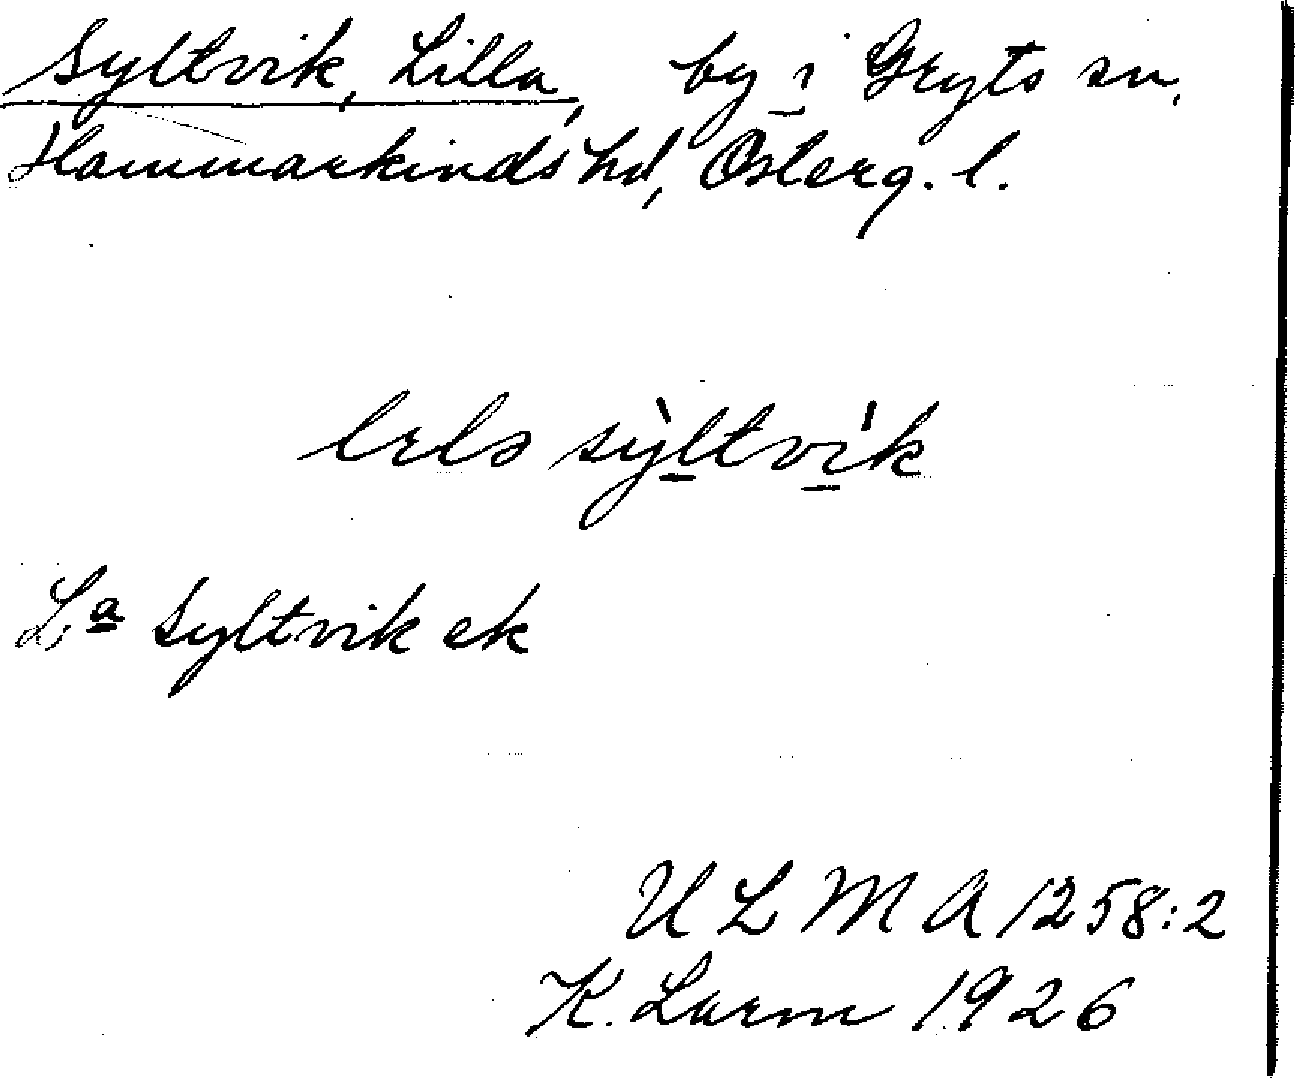 Syltvik, Lilla, by i Gryts sn,
Hammarkinds hd, Österg. l.
sỳltvík
Lª Syltvik ek
ULMA 1258:2
K. Larm 1926